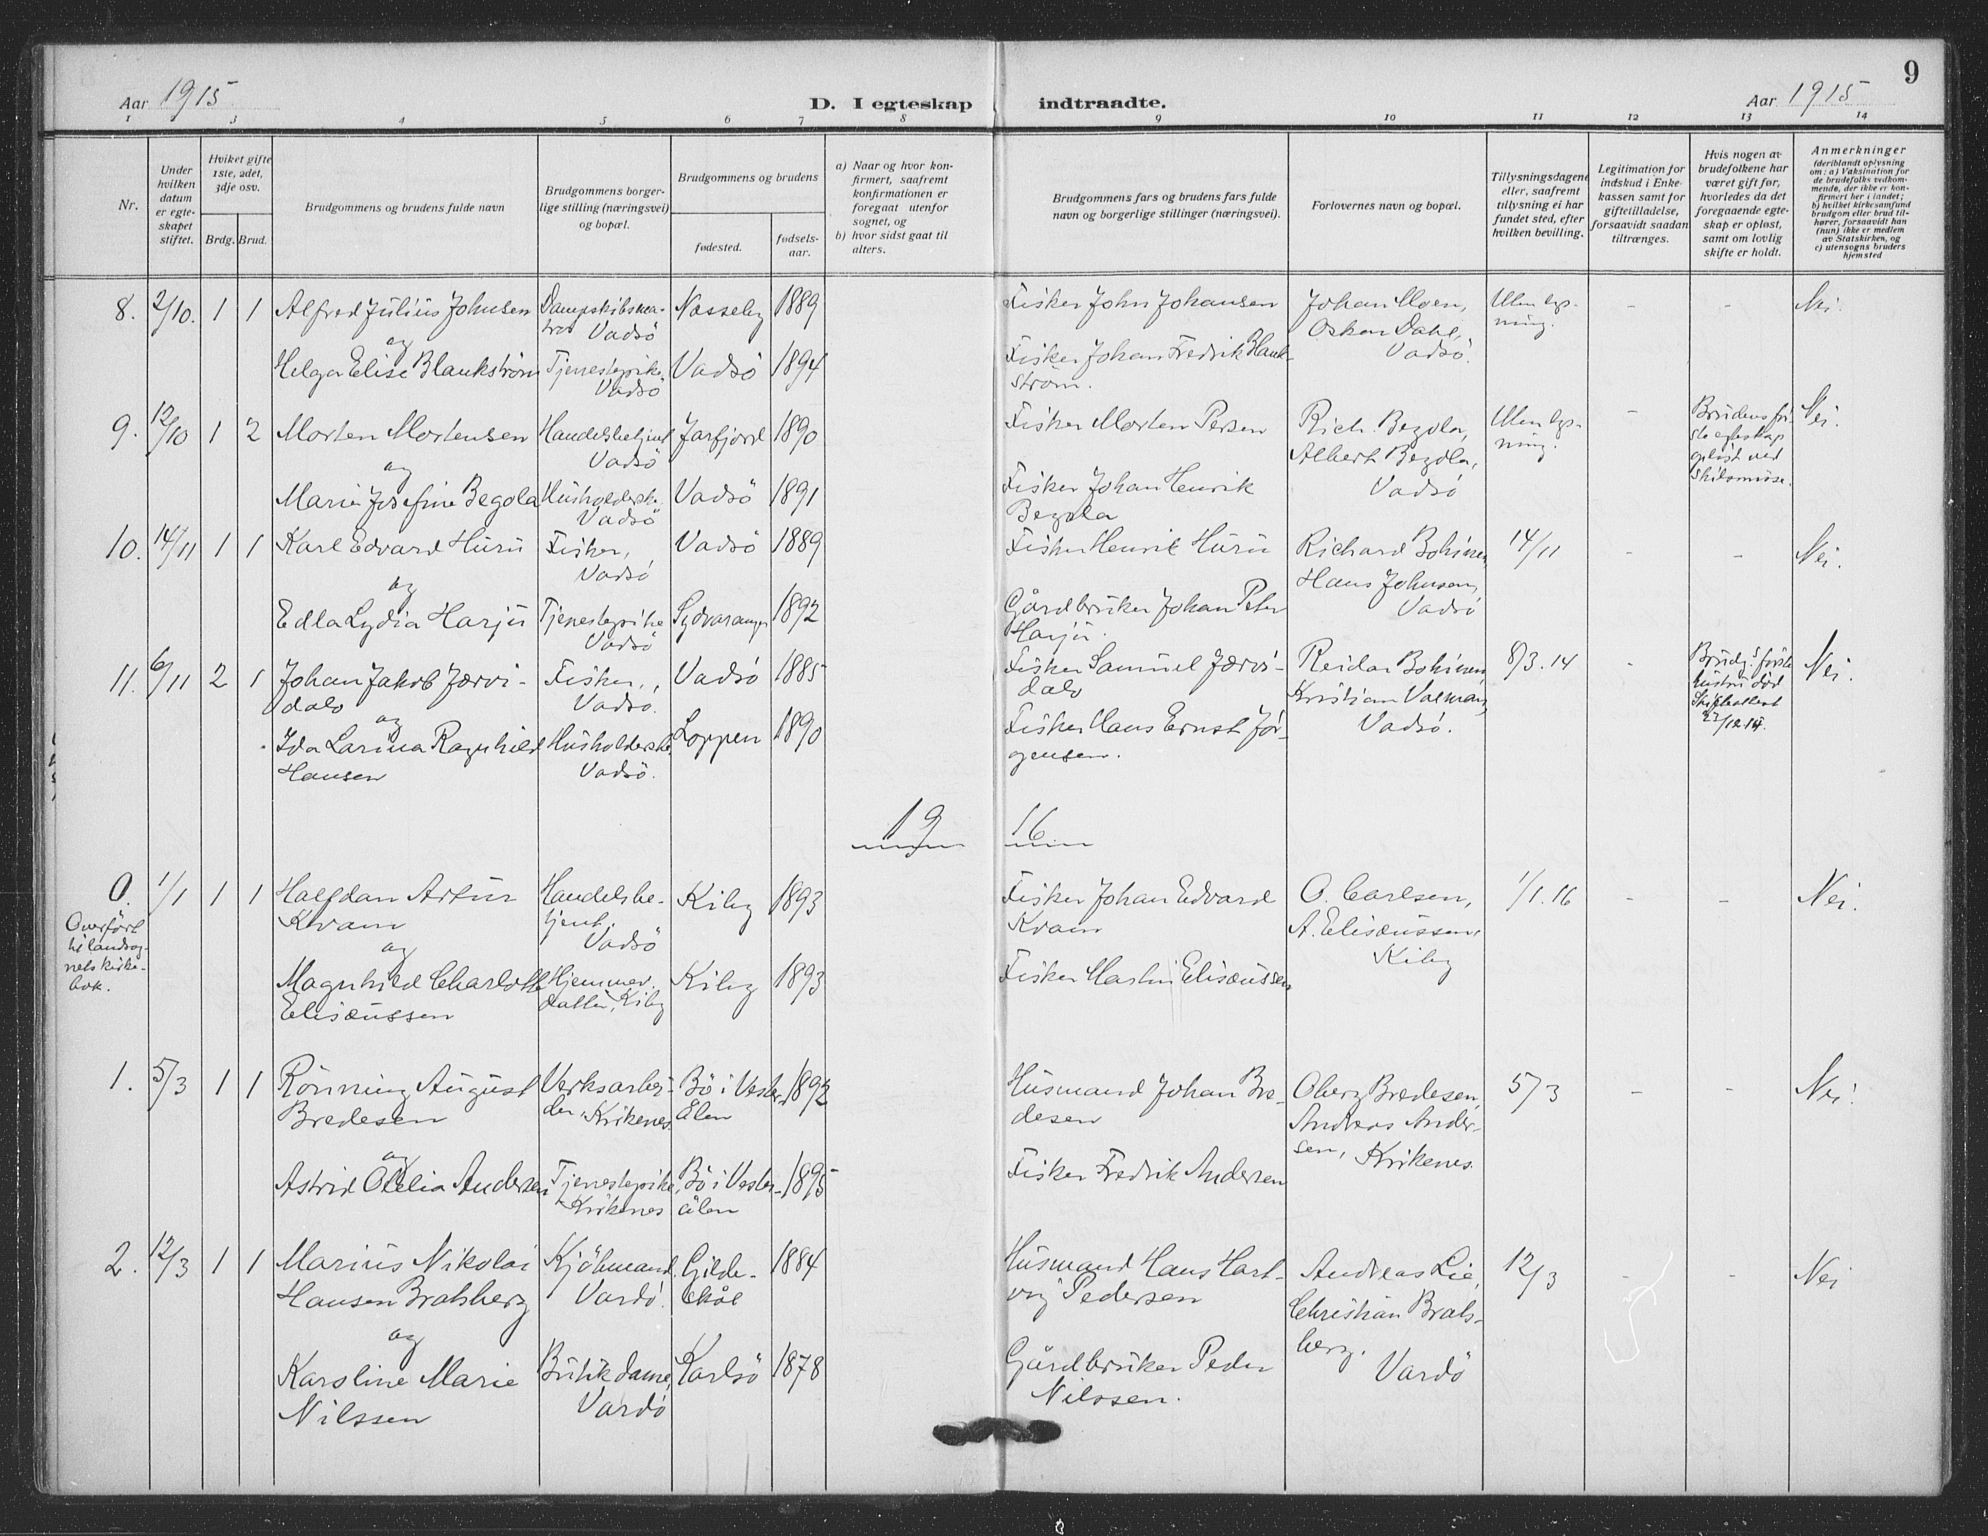 Aar 1915
D. I egteskap indtraadte.
Aar 1915
9
1 2 3 4 5 6 7 8 9 10 11 12 13 14
Nr.
Under
hvilken
datum
er egte-
skapet
stiftet.
Hvilket gifte
1ste, 2det,
3dje osv.
Brdg. Brud.
Brudgommens og brudens fulde navn
Brudgommens borger-
lige stilling (næringsvei)
og bopæl.
Brudgommens og brudens
fødested.
fødsels-
aar.
a) Naar og hvor kon-
firmert, saafremt
konfirmationen er
foregaat utenfor
sognet, og
b) hvor sidst gaat til
alters.
Brudgommens fars og brudens fars fulde
navn og borgerlige stillinger (næringsvei).
Forlovernes navn og bopæl.
Tillysningsdagene
eller, saafremt
tillysning ei har
fundet sted, efter
hvilken bevilling.
Legitimation for
indskud i Enke-
kassen samt for
giftetilladelse,
forsaavidt saadan
tiltrænges.
Hvis nogen av
brudefolkene har
været gift før,
hvorledes da det
foregaaende egte-
skap er opløst,
samt om lovlig
skifte er holdt.
Anmerkninger
(deriblandt oplysning
om: a) Vaksination for
de brudefolks vedkom-
mende, der ikke er kon-
firmert her i landet;
b) hvilket kirkesamfund
brudgom eller brud til-
hører, forsaavidt han
(hun) ikke er medlem
av Statskirken, og
c) utensogns bruders
hjemsted
8. 2/10. 1 1 Alfred Julius Johnsen
og
Helga Elise Blankström
Dampskibsma-
tros
Vadsö
Tjenestepike
Vadsö
Næsseby 1889
Vadsö 1894
Fisker John Johansen
Fisker Johan Fredrik Blank-
ström.
Johan Moen,
Oskar Dahl,
Vadsö.
Uten lys-
ning.
- - Nei.
9. 12/10 1 2 Morten Mortensen
og
Marie Josefine Begola
Handelsbetjent
Vadsö
Husholderske
Vadsö
Jarfjord 1890
Vadsö 1891
Fisker Morten Persen
Fisker Johan Henrik
Bezola
Rich. Bezola,
Albert Bezola,
Vadsö
Uten lys-
ning.
-
Brudensför-
ste egteskap
oplöst ved
skilsmisse.
Nei.
10. 14/11 1 1 Karl Edvard Huru
og
Edla Lydia Harju
Fisker,
Vadsö
Tjenestepike
Vadsö
Vadsö 1889
Sydvaranger 1892
Fisker Henrik Huru
Gårdbruker Johan Peter
Harju.
Richard Bohinen
Hans Johnsen,
Vadsö
14/11
- - Nei.
11. 6/11 2 1 Johan Jakob Jærvi-
dalo
og
Ida Larina Ragnhild
Hansen
Fisker,
Vadsö.
Husholderske
Vadsö.
Vadsö 1885
Loppen 1890
Fisker Samuel Jærvi-
dalo
Fisker Hans Ernst Jör-
gensen.
Reidar Bohinen
Kristian Valman,
Vadsö.
8/3.14
-
Brudg.s förste
hustru död
Skifteattest
22/12.14.
Nei.
19 16
0.
Overfört
til landsog-
nets kirke-
bok.
1/1 1 1 Halfdan Artur
Kvam
og
Magnhild Charlotte
Elisæussen
Handelsbe-
tjent,
Vadsö
Hjemmev.
datter, Kiby
Kiby 1893
Kiby 1893
Fisker Johan Edvard
Kvam
Fisker Martin Elisæussen
O. Carlsen,
A. Elisæussen,
Kiby
1/1.16
- - Nei.
1. 5/3 1 1 Rönning August
Bredesen
og
Astrid Otelia Andersen
Verksarbei-
der, Kirkenes.
Tjenestepike,
Kirkenes
Bö i Vester-
ålen 1892
Bö i Vester-
ålen 1895
Husmand Johan Bre-
desen
Fisker Fredrik Andersen
Oberg Bredesen,
Andreas Ander-
sen, Kirkenes.
5/3
- - Nei.
2. 12/3 1 1 Marius Nikolai
Hansen Bratsberg
og
Karoline Marie
Nilssen
Kjöbmand,
Vardö.
Butikdame,
Vardö
Gilde-
skål 1884
Karlsö 1878
Husmand Hans Hart-
vig Pedersen
Gårdbruker Peder
Nilssen.
Andreas Lie,
Christian Brats-
berg.
Vardö
12/3
- - Nei